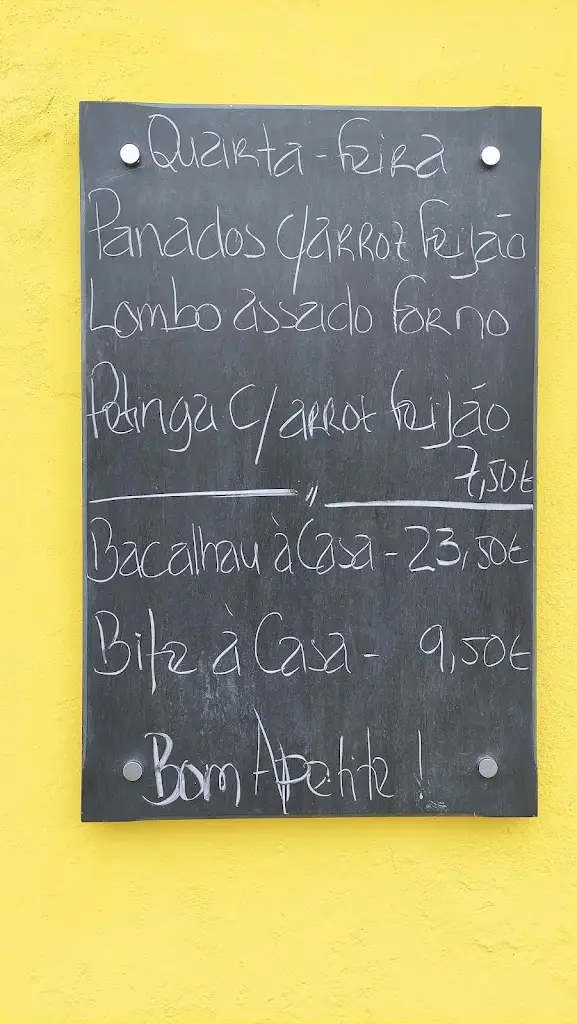 Quarta-feira
Panados c/arroz feijão
Lombo assado forno
Petinga c/ arroz feijão
7,50€
"
Bacalhau à Casa - 23,50€
Bife à Casa - 9,50€
Bom Apetite!